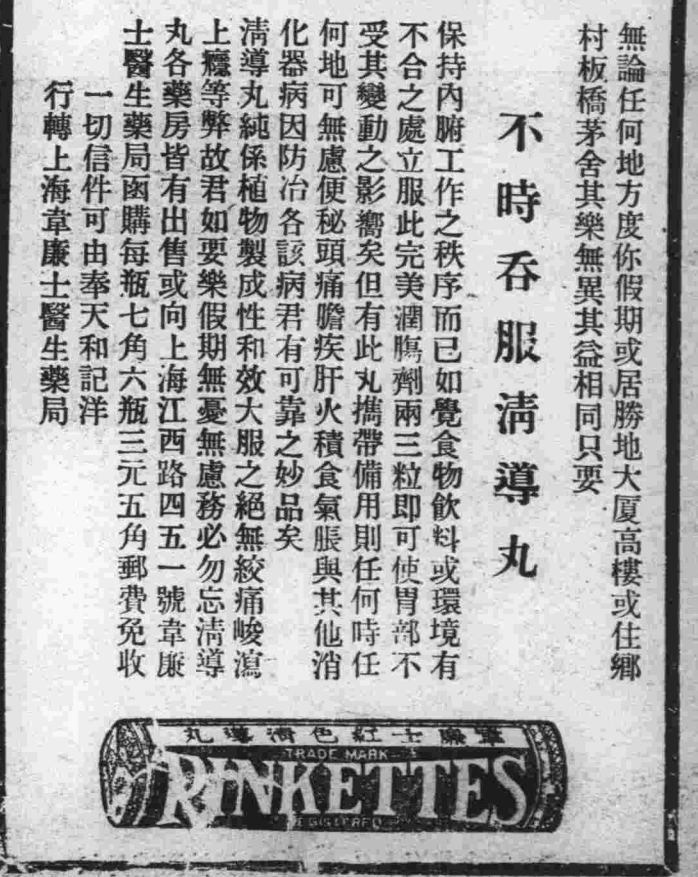 無論任何地方度你假期或居勝地大厦高樓或住鄉
村板橋茅舍其樂無異其益相同只要
不時吞服清導丸
保持內腑工作之秩序而已如覺食物飲料或環境有
不合之處立服此完美潤腸劑兩三粒即可使胃部不
受其變動之影嚮矣但有此丸攜帶備用則任何時任
何地可無慮便秘頭痛膽疾肝火積食氣脹與其他消
化器病因防治各該病君有可靠之妙品矣
清導丸純係植物製成性和效大服之絕無絞痛峻瀉
上癮等弊故君如要樂假期無憂無慮務必勿忘清導
丸各藥房皆有出售或向上海江西路四五一號韋廉
士醫生藥局函購每瓶七角六瓶三元五角郵費免收
一切信件可由奉天和記洋
行轉上海韋廉士醫生藥局
韋廉士紅色清導丸
TRADE MARK
PINKETTES
REGISTERED